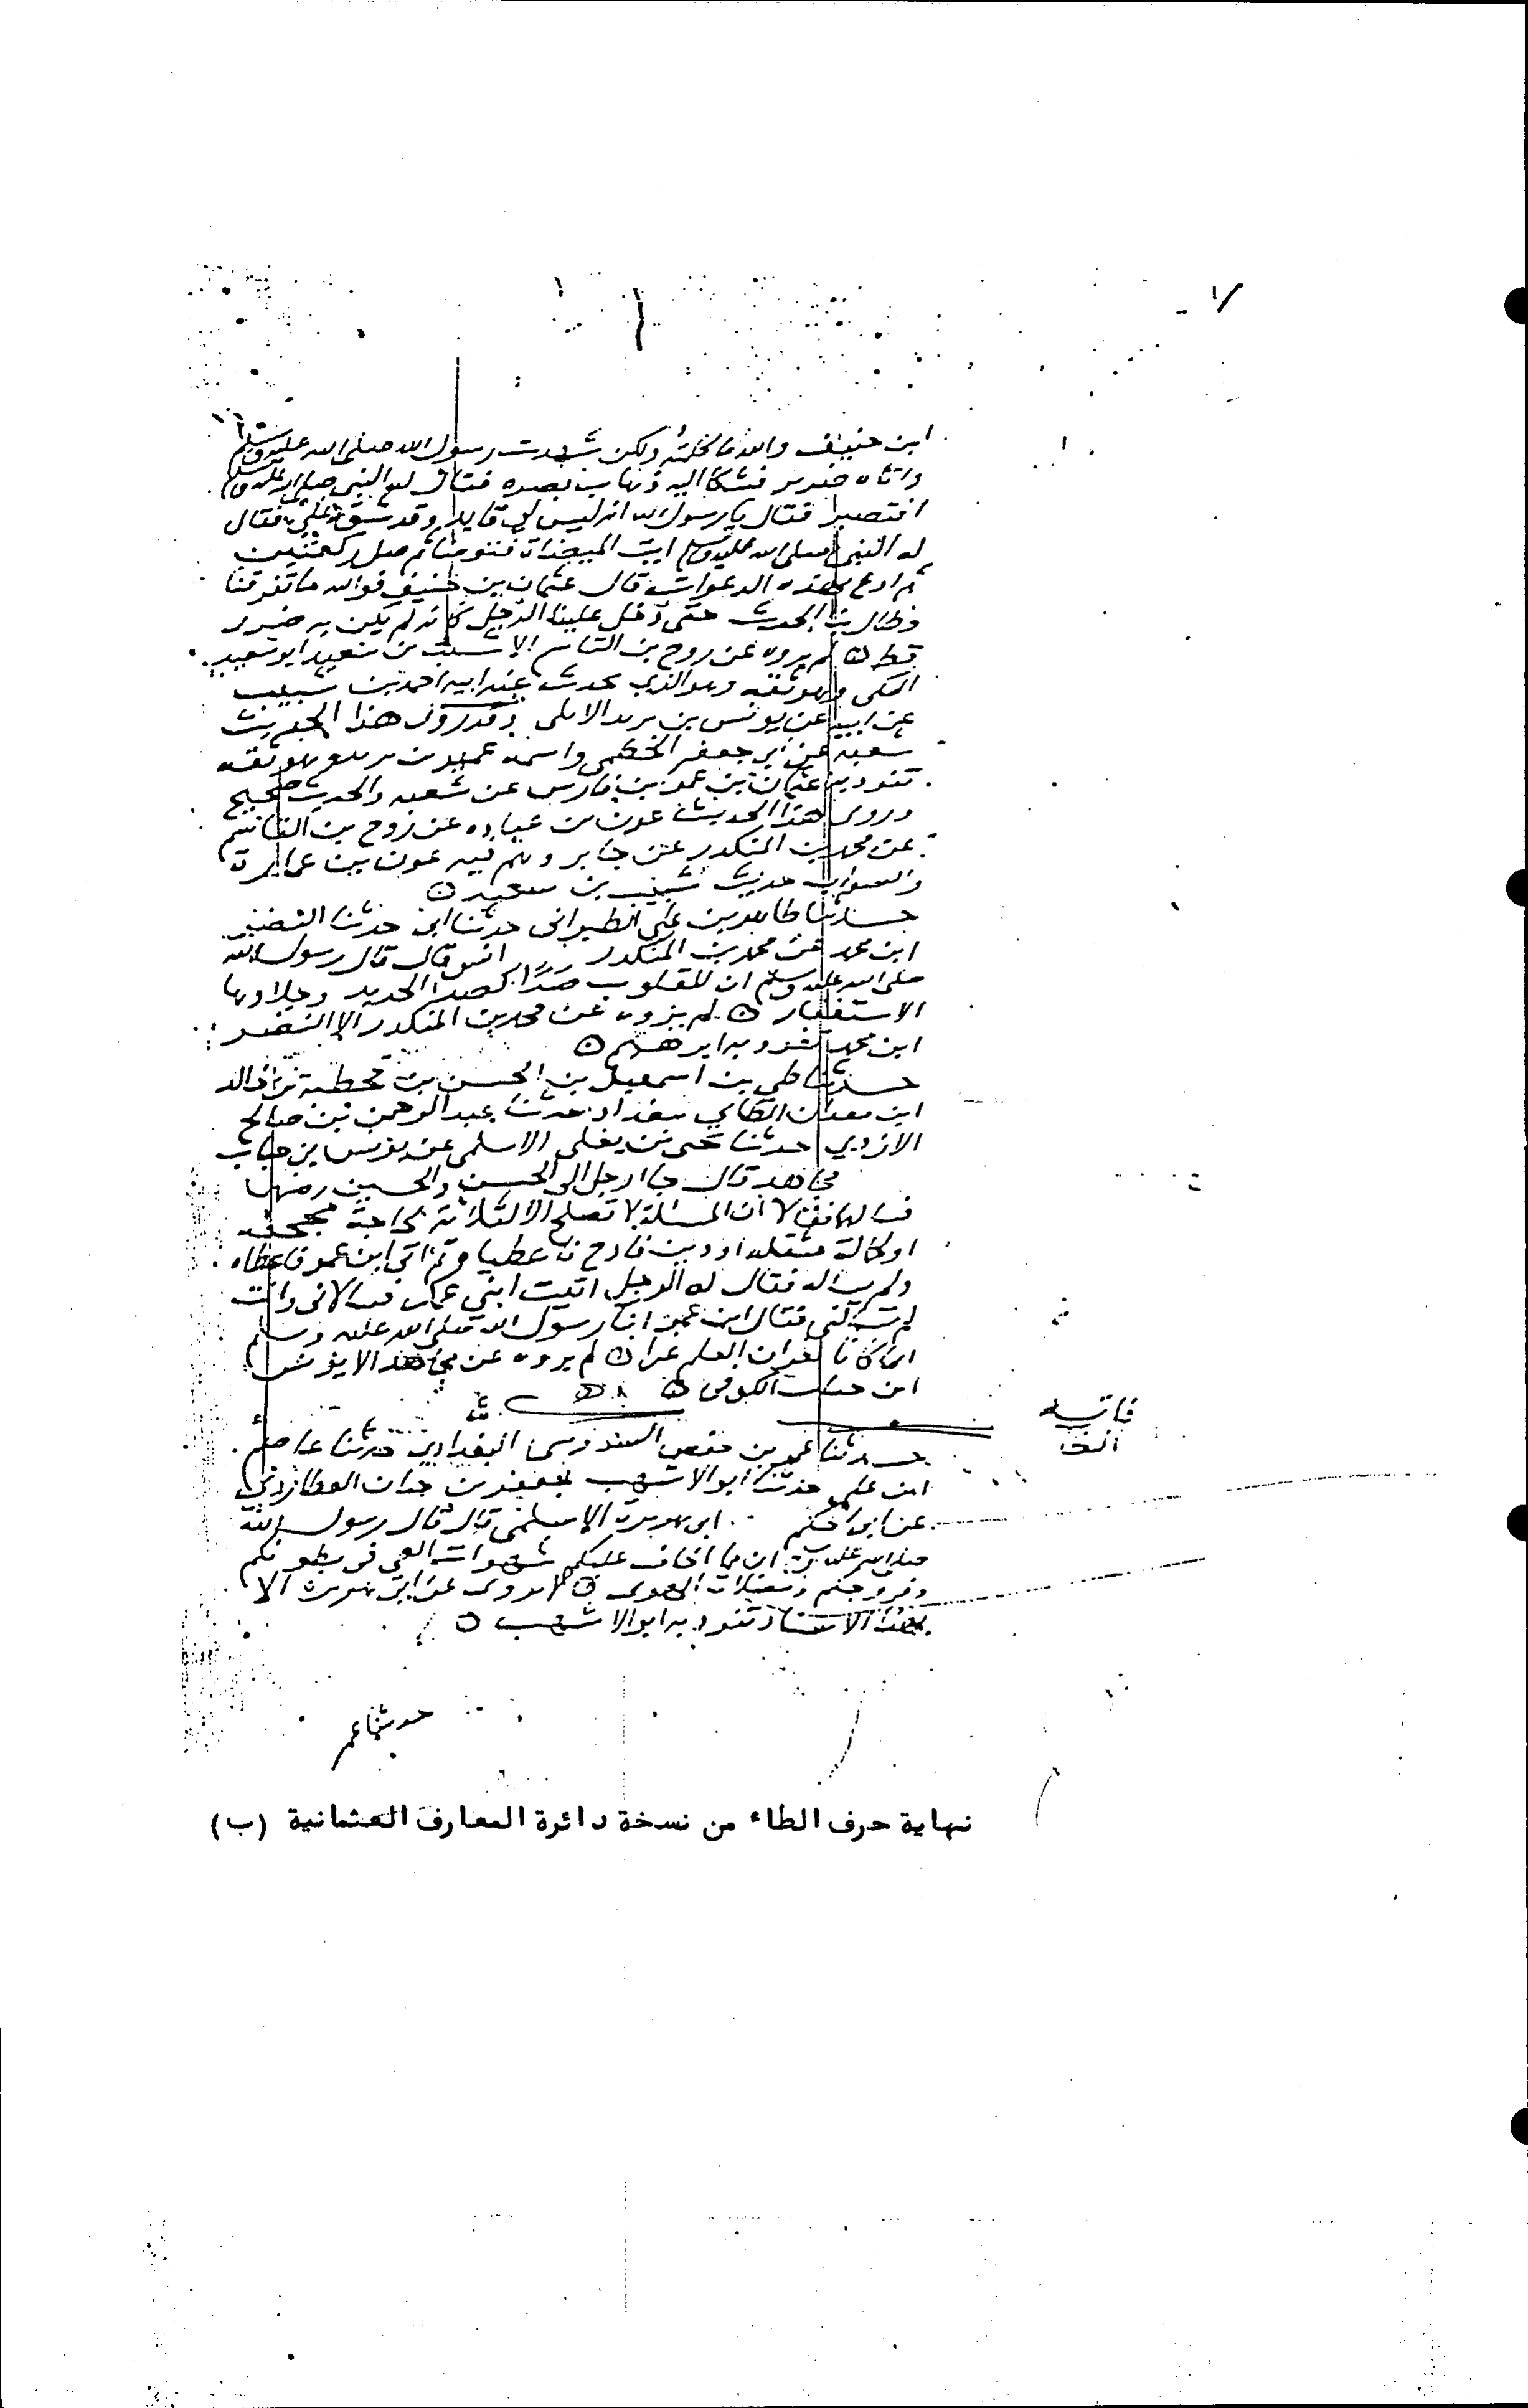 ابن حنيف والله ما كلمته ولكن شهدت رسول الله صلى الله عليه وسلم
واتاه ضرير فشكا اليه ذهاب بصره فقال له النبي صلى الله عليه وسلم
افتصبر فقال يا رسول الله انه ليس لي قايد وقد شق علي فقال
له النبي صلى الله عليه وسلم ايت الميضاة فتوضا ثم صل ركعتين
ثم ادع بهذه الدعوات قال عثمان بن حنيف فوالله ما تفرقنا
وطال بنا الحديث حتى دخل علينا الرجل كانه لم يكن به ضرر
قط ه لم يروه عن روح بن القاسم الا شبيب بن سعيد ابو سعيد
المكي وهو ثقه وهو الذي يحدث عنه ابنه احمد بن شبيب
عن ابيه عن يونس بن يزيد الايلي وقد روى هذا الحديث
شعبه عن ابي جعفر الخطمي واسمه عمير بن يزيد وهو ثقه
تفرد به عثمان بن عمر بن فارس عن شعبه والحديث صحيح
وروى هذا الحديث عون بن عماره عن روح بن القاسم
عن محمد بن المنكدر عن جابر وهم فيه عون بن عمارة
والصواب حديث شبيب بن سعيد ه
حدثنا طاهر بن علي الطبراني حدثنا ابي حدثنا النضر
ابن محمد عن محمد بن المنكدر انس قال قال رسول الله
صلى الله عليه وسلم ان للقلوب صدا كصدا الحديد وجلاوها
الاستغفار ه لم يروه عن محمد بن المنكدر الا النضر
ابن محمد تفرد به ابراهيم ه
حدثنا طي بن اسمعيل بن الحسن بن قحطبة بن خالد
ابن معدان الطائي ببغداد حدثنا عبد الرحمن بن صالح
الازدي حدثنا يحيى بن يعلى الاسلمي عن يونس بن خباب
مجاهد قال جا رجل الى الحسن والحسين
فسالهما فقالا ان المسئلة لا تصلح الا لثلاثة لحاجة مجحفه
او لحمالة مثقله او دين فادح فاعطياه ثم اتى ابن عمر فاعطاه
ولم يساله فقال له الرجل اتيت ابني عمك فسالاني وانت
لم تسالني فقال ابن عمر ابنا رسول الله صلى الله عليه وسلم
انما كانا يغران العلم غرا ه لم يروه عن مجاهد الا يونس
ابن خباب الكوفي ه
حدثنا عمر بن حفص السدوسي البغدادي حدثنا عاصم
ابن علي حدثنا ابو الاشهب جعفر بن حيان العطاردي
عن ابي الحكم ابي برزة الاسلمي قال قال رسول الله
صلى الله عليه وسلم ان مما اخاف عليكم شهوات الغي في بطونكم
وفروجكم ومضلات الهوى ه لا يروى عن ابي برزة الا
بهذا الاسناد تفرد به ابو الاشهب ه
حدثنا عمر
نهاية حرف الطاء من نسخة دائرة المعارف العثمانية (ب)